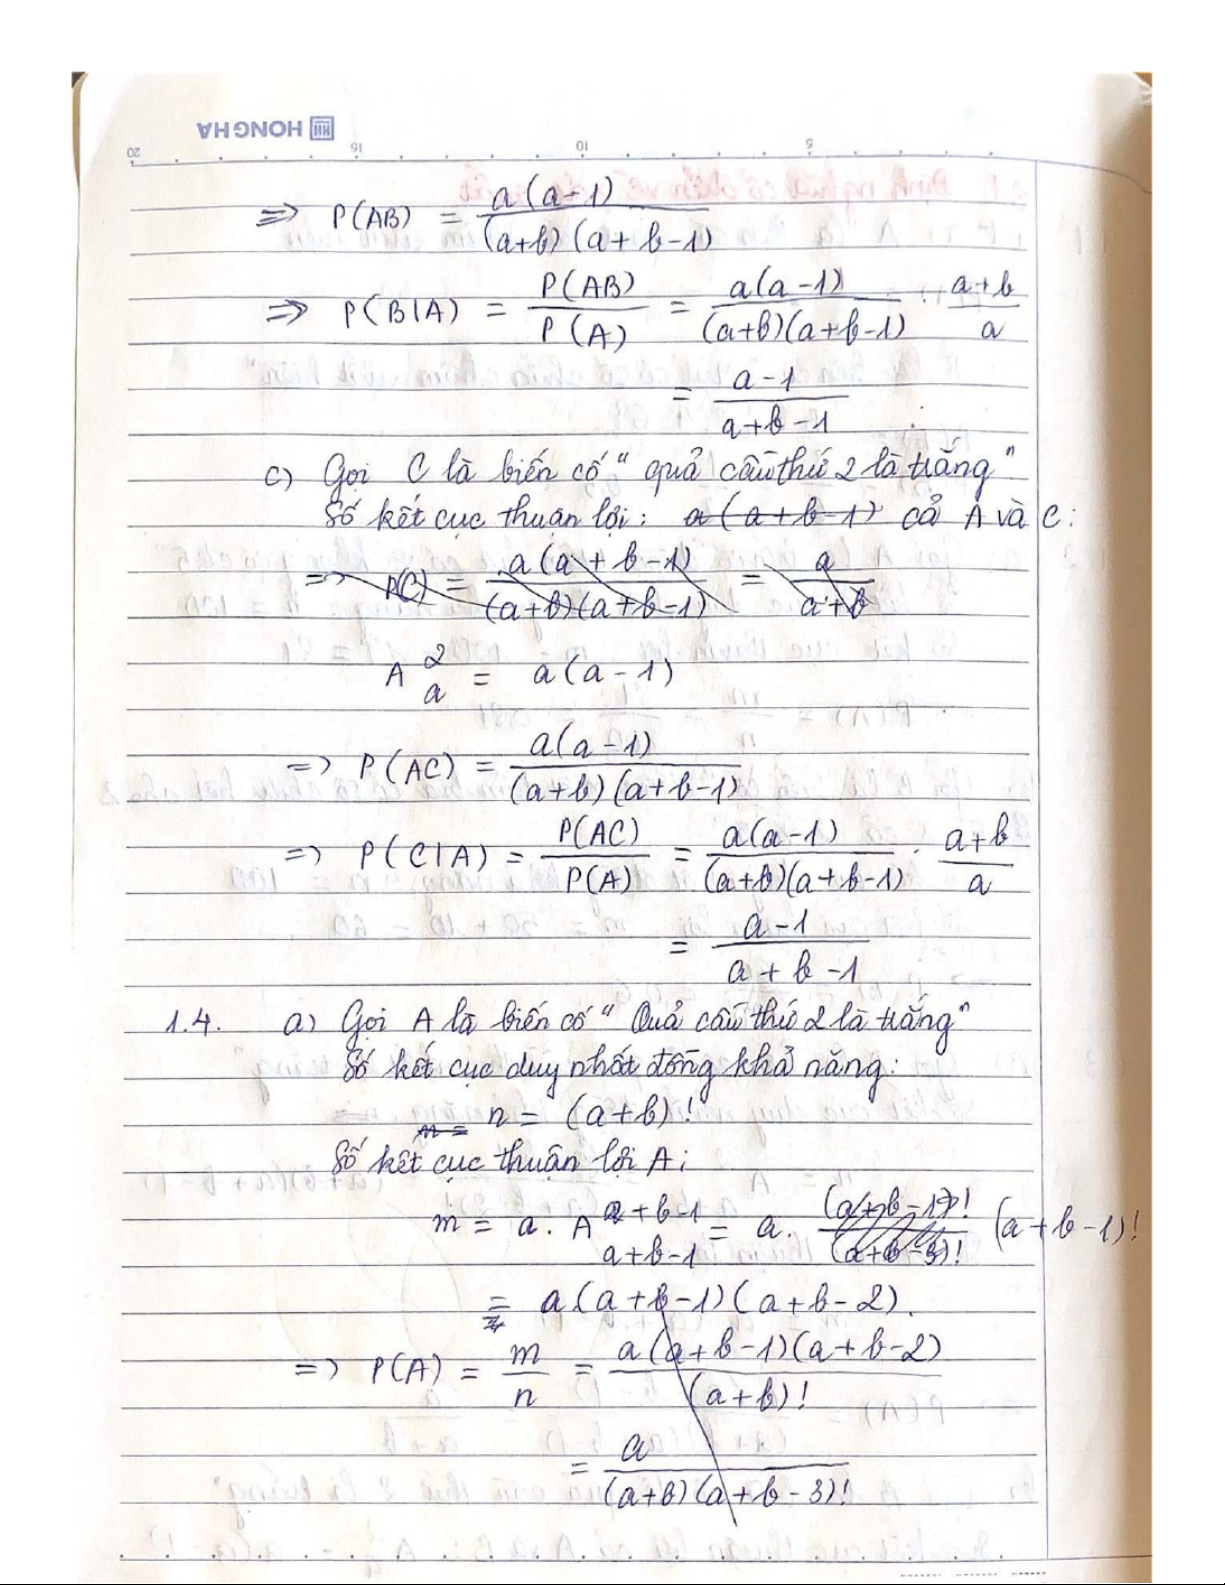 HONG HA
20 15 10 5
=> P(AB) = a(a-1) / (a+b)(a+b-1)
=> P(B|A) = P(AB) / P(A) = a(a-1) / (a+b)(a+b-1) . a+b / a
= a-1 / a+b-1
c) Gọi C là biến cố "quả cầu thứ 2 là trắng"
Số kết cục thuận lợi: a(a+b-1) cả A và C:
=> P(C) = a(a+b-1) / (a+b)(a+b-1) = a / a+b
A²ₐ = a(a-1)
=> P(AC) = a(a-1) / (a+b)(a+b-1)
=> P(C|A) = P(AC) / P(A) = a(a-1) / (a+b)(a+b-1) . a+b / a
= a-1 / a+b-1
1.4. a) Gọi A là biến cố "Quả cầu thứ 2 là trắng"
Số kết cục duy nhất đồng khả năng:
m = n = (a+b)!
Số kết cục thuận lợi A:
m = a. A^{a+b-1}_{a+b-1} = a. (a+b-1)! / (a+b-3)! (a+b-1)!
= a(a+b-1)(a+b-2).
=> P(A) = m / n = a(a+b-1)(a+b-2) / (a+b)!
= a / (a+b)(a+b-3)!